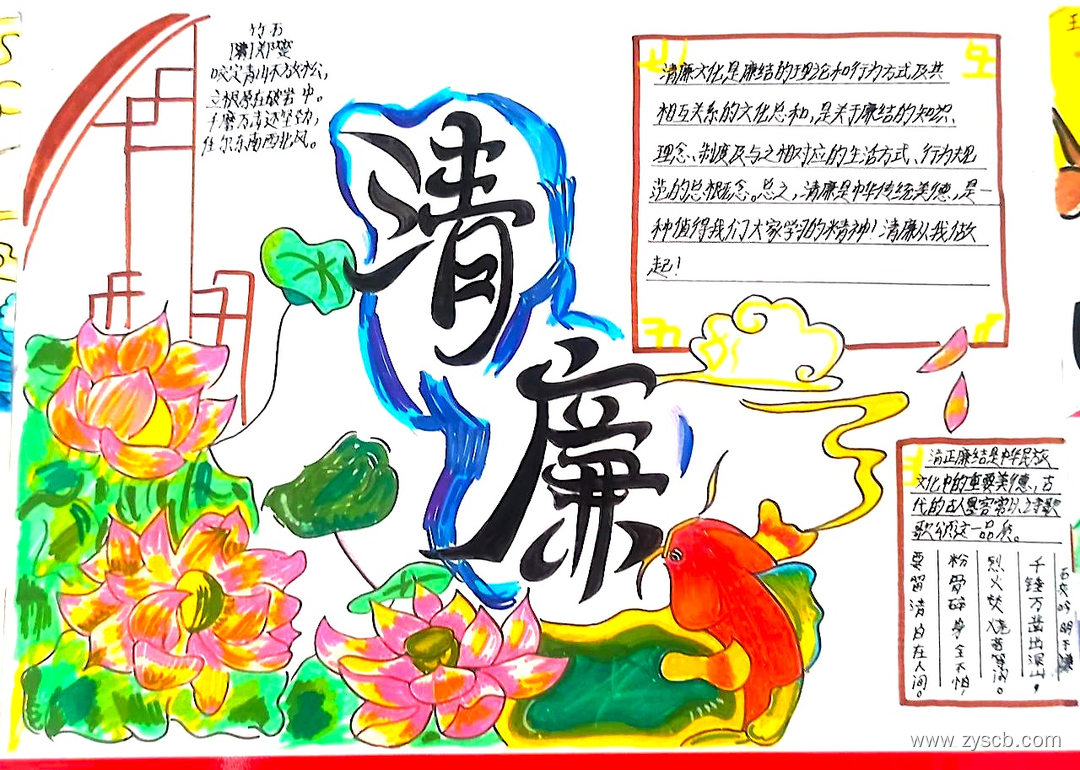 竹石
[清]郑燮
咬定青山不放松,
立根原在破岩中。
千磨万击还坚劲,
任尔东南西北风。
清廉
清廉文化是廉结的理论和行为方式及其
相互关系的文化总和,是关于廉结的知识、
理念、制度及与之相对应的生活方式、行为规
范的总概念。总之,清廉是中华传统美德,是一
种值得我们大家学习的精神!清廉从我做
起!
清正廉结是中华民族
文化中的重要美德,古
代的文人墨客常以文字歌
歌颂这一品质。
石灰吟 明 于谦
千锤万凿出深山,
烈火焚烧若等闲。
粉骨碎身全不怕,
要留清白在人间。
www.zyscb.com